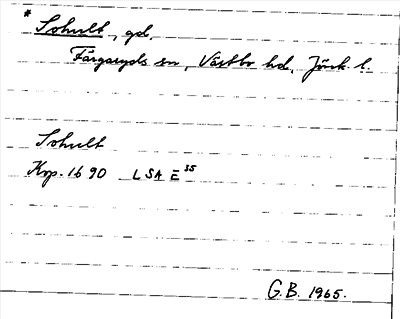 * Sohult, gd.
Färgaryds sn, Västbo hd, Jönk. l.
Sohult
Krp. 1690 LSA E 35
G.B. 1965.